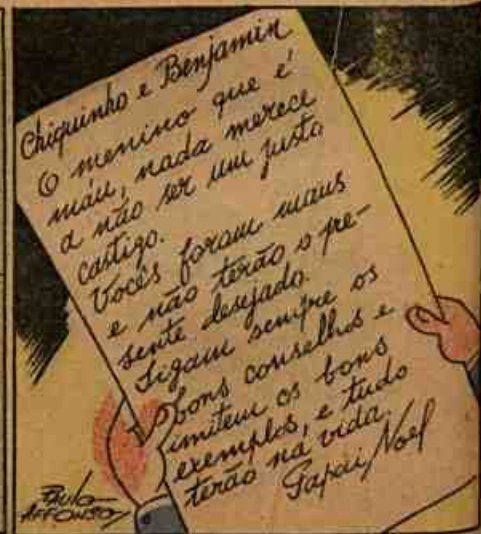 Chiquinho e Benjamin
O menino que é
máu, nada merece
a não ser um justo
castigo.
Vocês foram maus
e não terão o pre-
sente desejado.
Sigam sempre os
bons conselhos e
imitem os bons
exemplos, e tudo
terão na vida.
Papai Noel
PAULO
AFFONSO